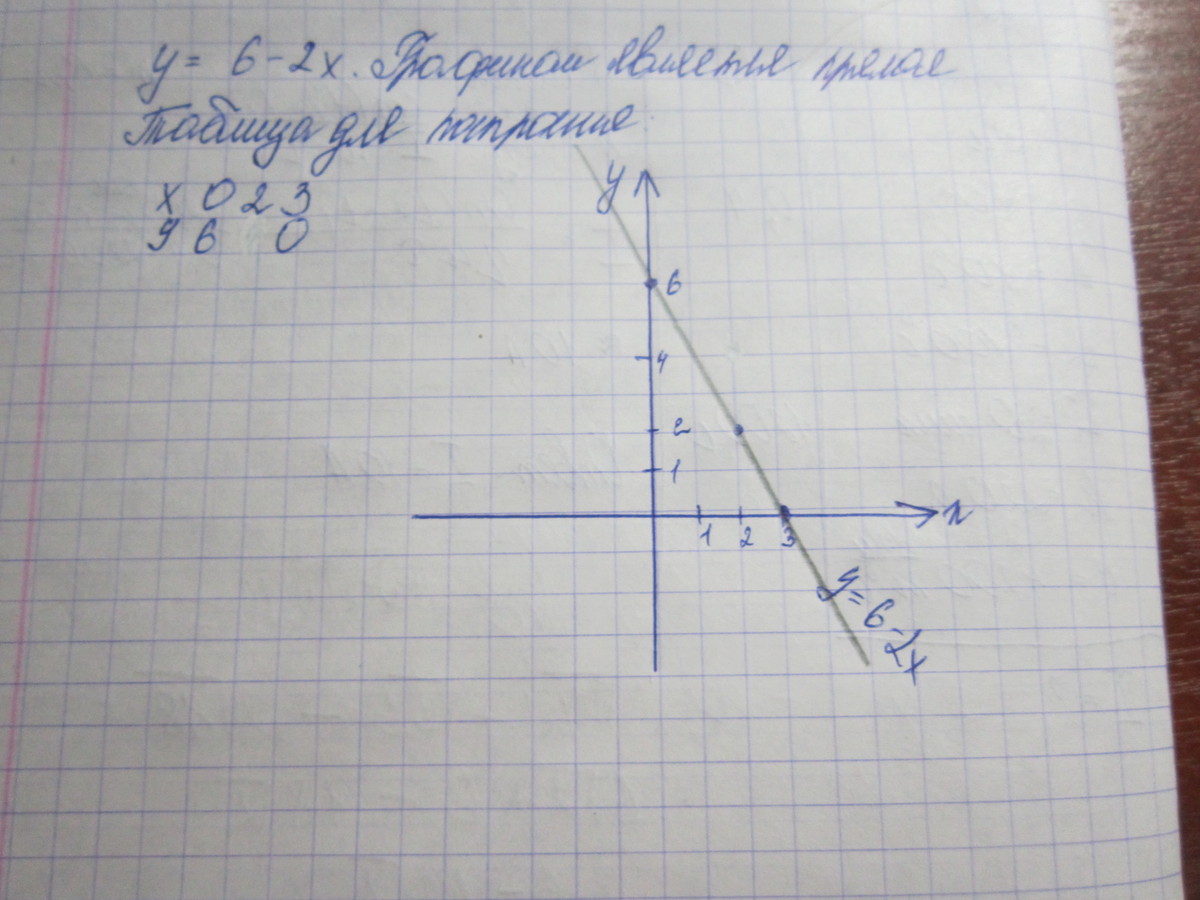 y = 6 - 2x. Графиком является прямая
Таблица для
x 0 2 3
y 6 0
y
6
4
2
1
1 2 3
x
y = 6 - 2x